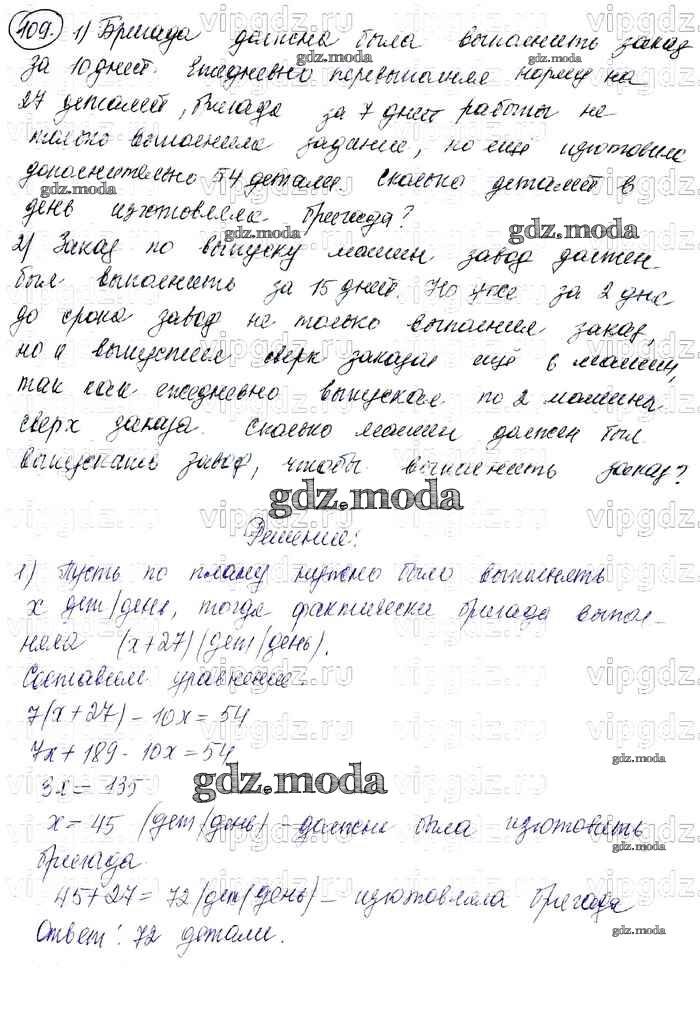 109. 1) Бригада должна была выполнить заказ
за 10 дней. Ежедневно перевыполняя норму на
27 деталей, бригада за 7 дней работы не
только выполнила задание, но ещё изготовила
дополнительно 54 детали. Сколько деталей в
день изготовляла бригада?
2) Заказ по выпуску машин завод должен
был выполнить за 15 дней. Но уже за 2 дня
до срока завод не только выполнил заказ,
но и выпустил сверх заказа ещё 6 машин,
так как ежедневно выпускал по 2 машины
сверх заказа. Сколько машин должен был
выпускать завод, чтобы выполнить заказ?
gdz.moda
Решение:
1) Пусть по плану нужно было выполнять
x дет/день, тогда фактически бригада выпол-
няла (x+27) (дет/день).
Составим уравнение.
7(x+27) - 10x = 54
7x + 189 - 10x = 54
3x = 135
x = 45 (дет/день) - должна была изготовить
бригада
45+27 = 72 (дет/день) - изготовляла бригада
Ответ: 72 детали.